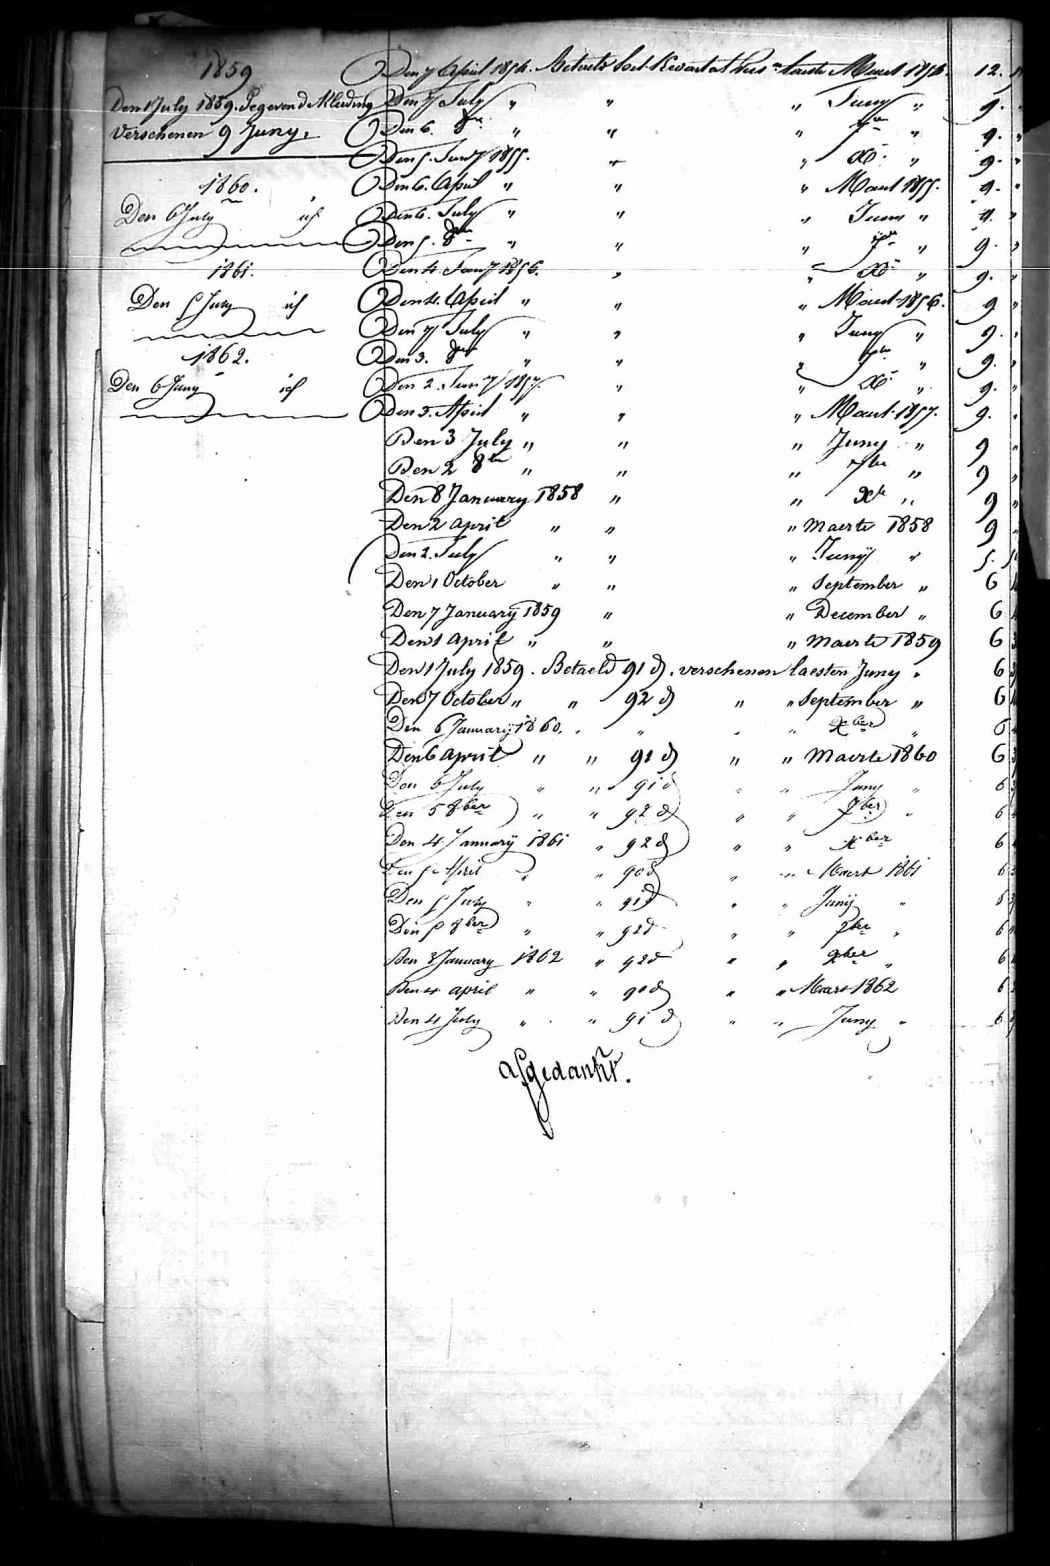 1859
Den 1 July 1859. Gegeven de Kleeding
Verschenen 9 Juny.
1860.
Den 6 July id
1861.
Den 5 July id
1862.
Den 6 Juny id
Den 7 April 1854. Betaeld het Kwartael laeste Maert 1854. 12.
Den 7 July " " " Juny " 9.
Den 6. 8br " " " 7br " 9.
Den 5. Jany 1855. " " Xbr " 9.
Den 6. April " " " Maert 1855. 9.
Den 6. July " " " Juny " 9.
Den 5. 8br " " " 7br " 9.
Den 4 Jany 1856. " " Xbr " 9.
Den 4. April " " " Maert 1856. 9
Den 4 July " " " Juny " 9.
Den 3. 8br " " " 7br " 9.
Den 2. Jany 1857. " " Xbr " 9.
Den 3. April " " " Maert 1857. 9.
Den 3 July " " " Juny " 9
Den 2 8br " " " 7br " 9
Den 8 January 1858 " " Xbr " 9
Den 2 april " " " Maerte 1858 9
Den 2. July " " " Junÿ " 5.
Den 1 October " " " September " 6
Den 7 January 1859 " " December " 6
Den 1 april " " " Maerte 1859 6
Den 1 July 1859. Betaeld 91 d. verschenen laesten Juny " 6
Den 7 October " " 92 d " " September " 6
Den 6 January 1860. " " " " Xber " 6
Den 6 april " " 91 d " " Maerte 1860 6
Den 6 July " " 91 d " " Juny " 6
Den 5 8ber " " 92 d " " 7ber " 6
Den 4 Januarij 1861 " 92 d " " Xber 6
Den 5 April " " 90 d " " Maert 1861 6
Den 5 July " " 91 d " " Junij " 6
Den 5 8ber " " 92 d " " 7ber " 6
Den 3 January 1862 " 92 d " " Xber " 6
Den 4 april " " 90 d " " Maart 1862 6
Den 4 July " " 91 d " " Juny " 6
afgedankt.